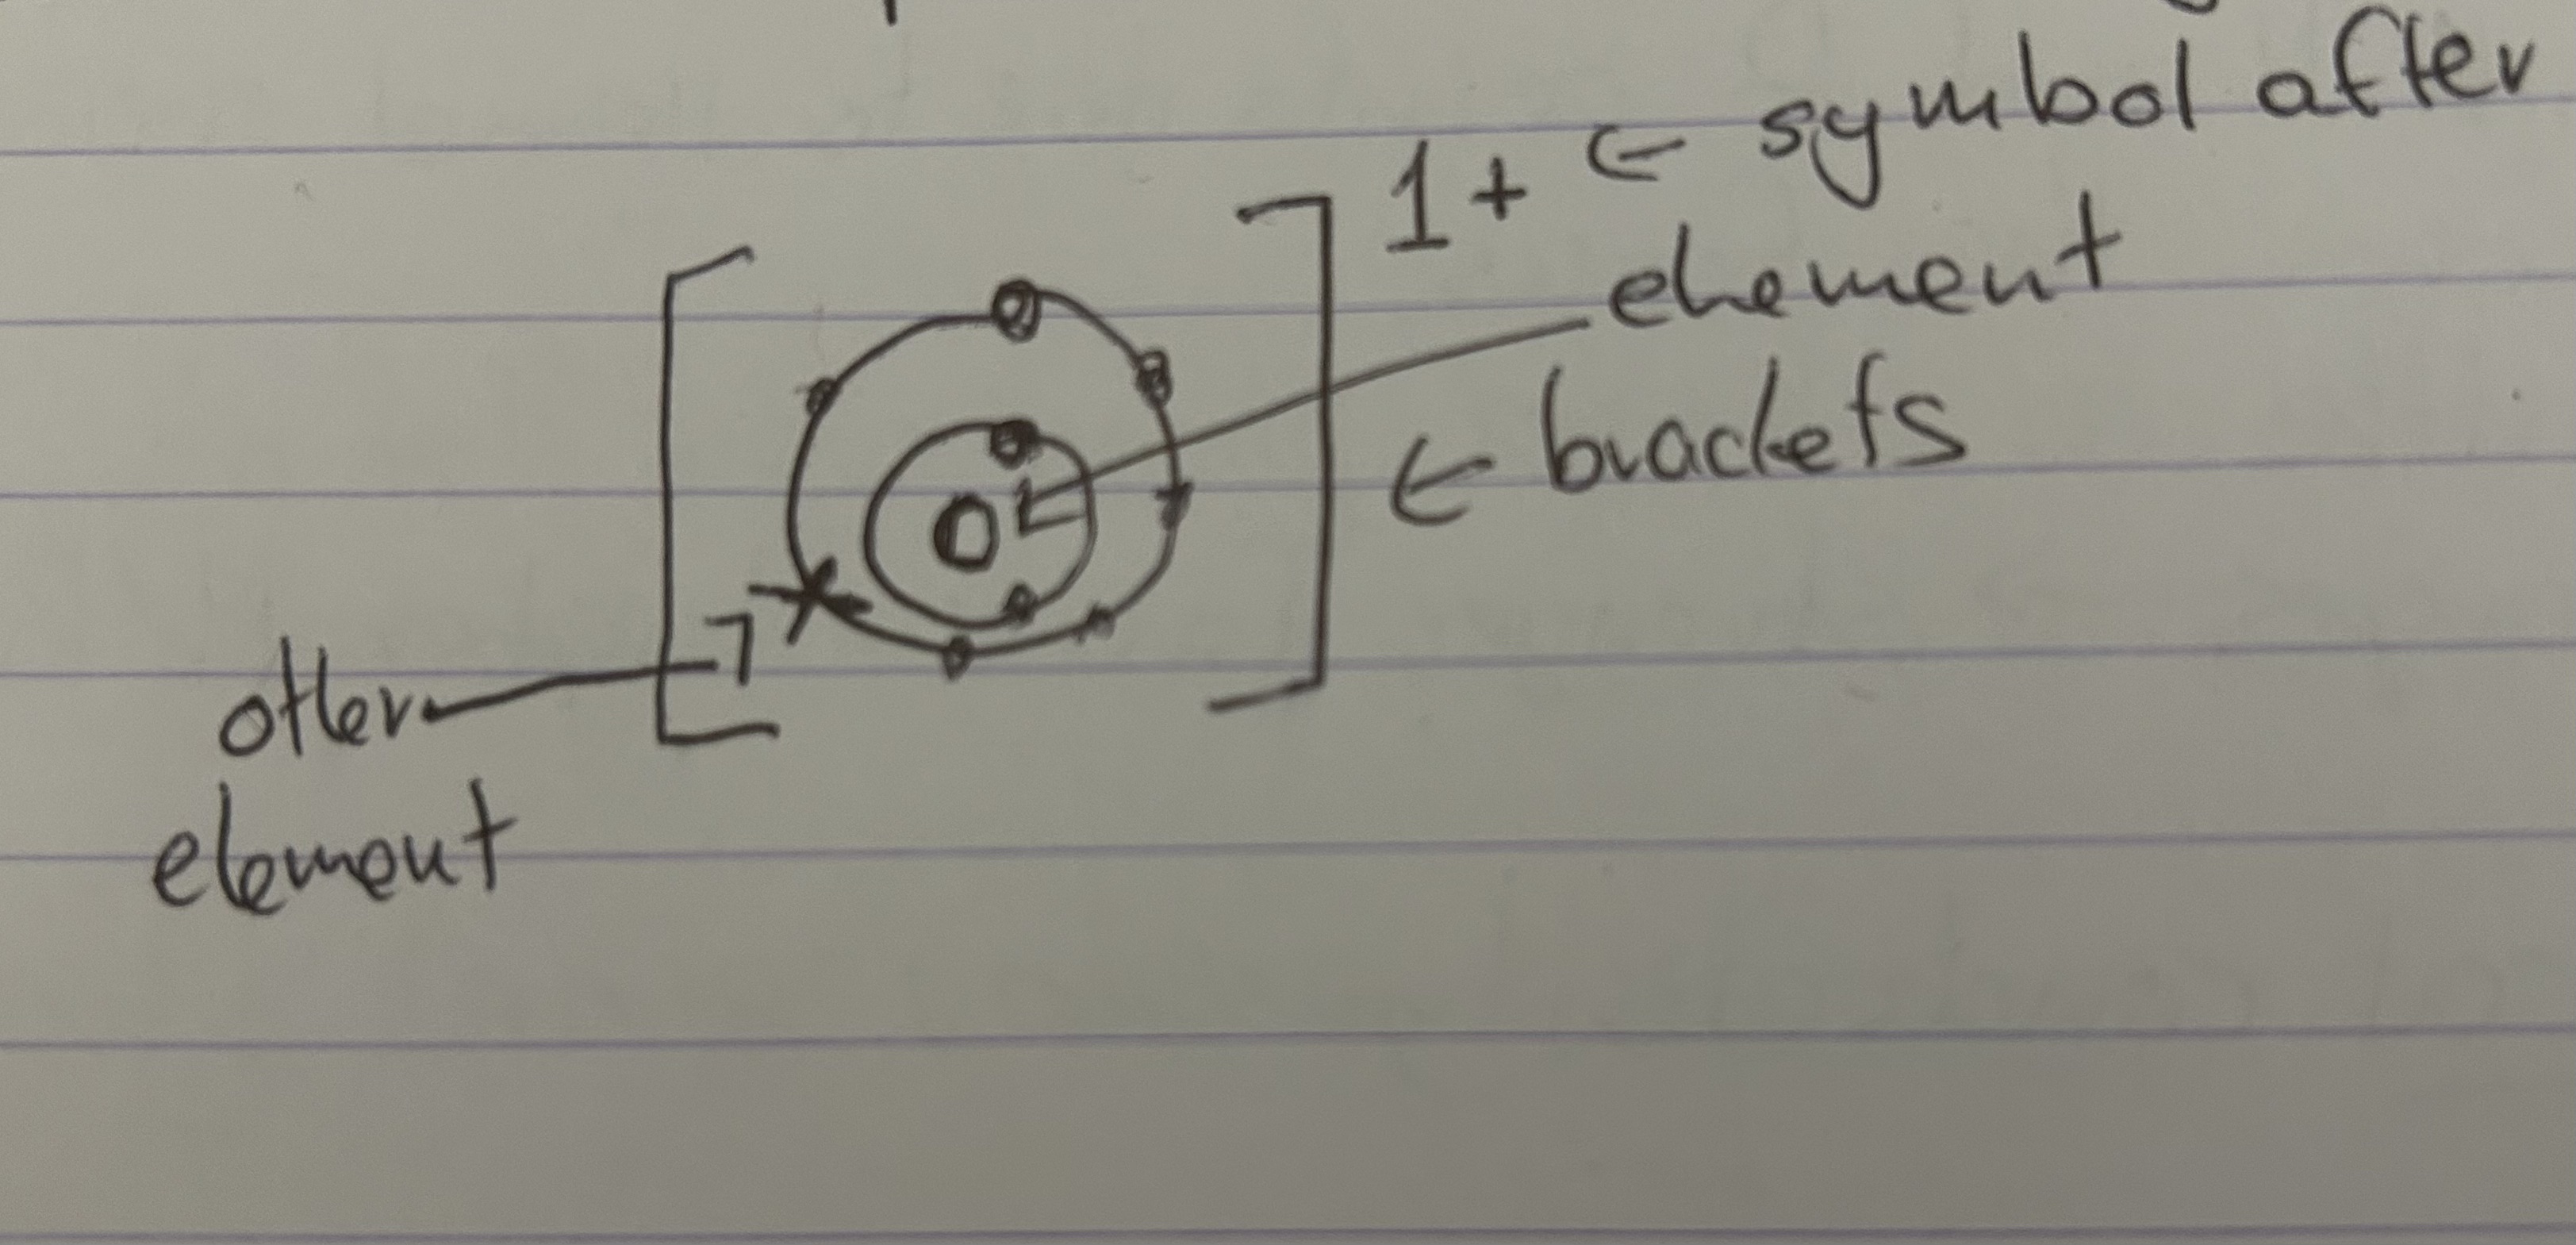 1+ ← symbol after
element
← brackets
O
other
element